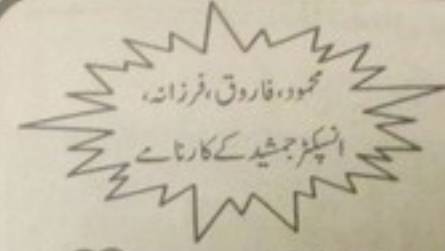 محمود، فاروق، فرزانہ،
انسپکٹر جمشید کے کارنامے